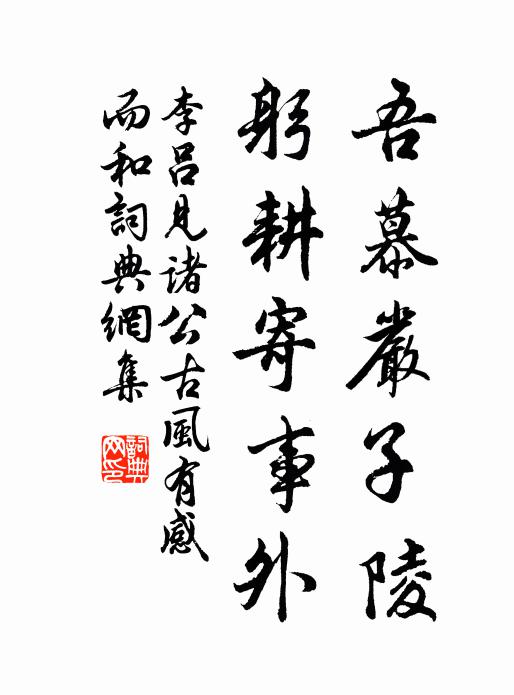 吾慕嚴子陵
躬耕寄事外
李呂見諸公古風有感
而和詞典網集
詞典
网印